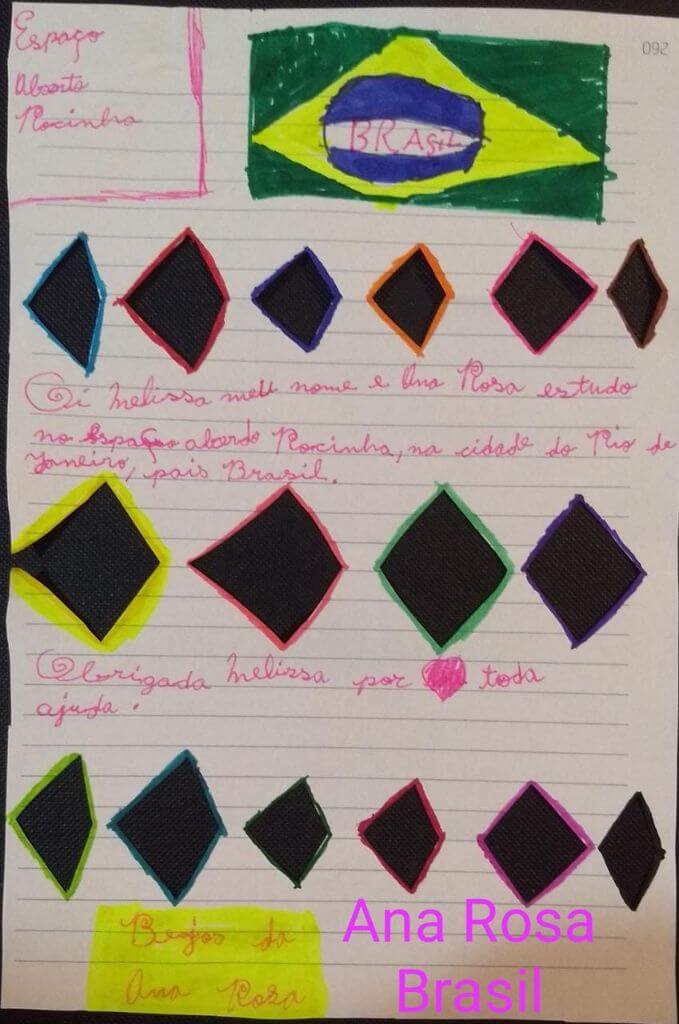 Espaço
Aberto
Rocinha
092
BRASIL
Oi Melissa meu nome e Ana Rosa estudo
no Espaço aberdo Rocinha, na cidade do Rio de
Janeiro, pais Brasil.
Obrigada Melissa por toda
ajuda.
Beijos da
Ana Rosa
Ana Rosa
Brasil